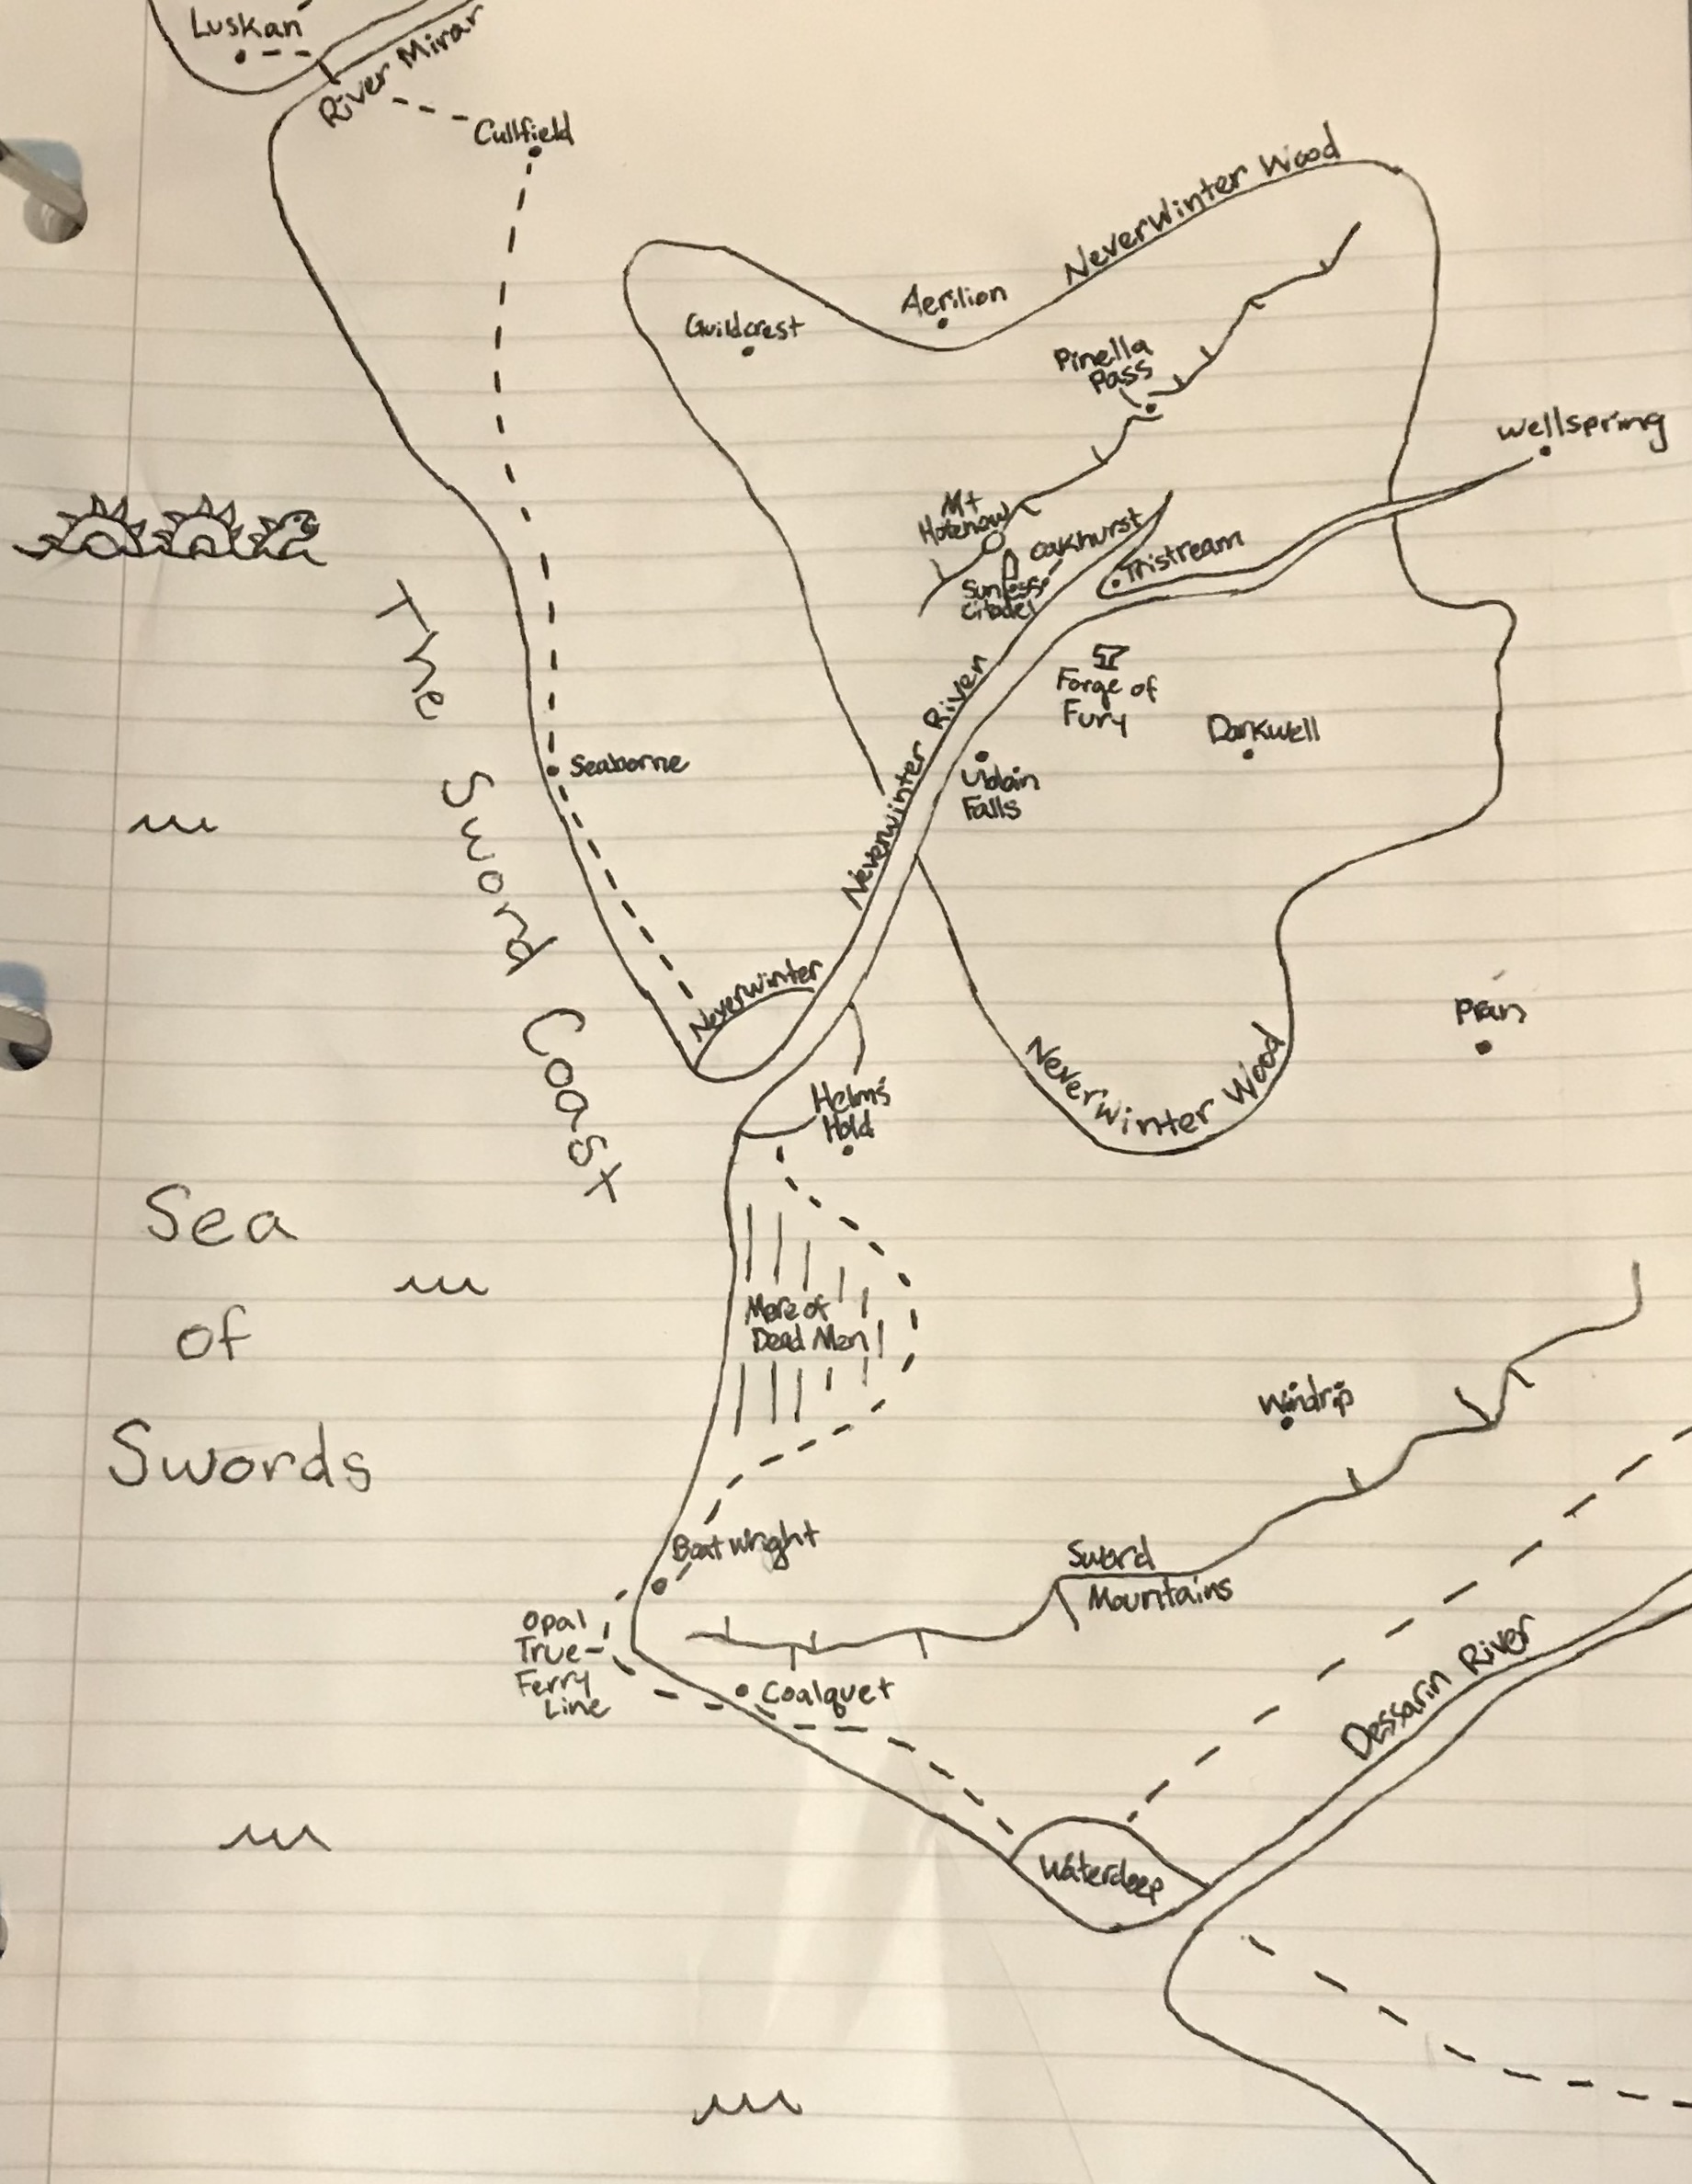 Luskan
River Mirar
Cullfield
Neverwinter Wood
Aerilion
Guildcrest
Pinella
Pass
Wellspring
Mt
Hotenow
Oakhurst
Tristream
Sunless
Citadel
The Sword Coast
Neverwinter River
Forge of
Fury
Darkwell
Seaborne
Falls
Neverwinter
Neverwinter Wood
Helm's
Hold
Sea
of
Swords
Mere of
Dead Men
Windrip
Boatwright
Sword
Mountains
Opal
True
Ferry
Line
Coalquet
Dessarin River
Waterdeep